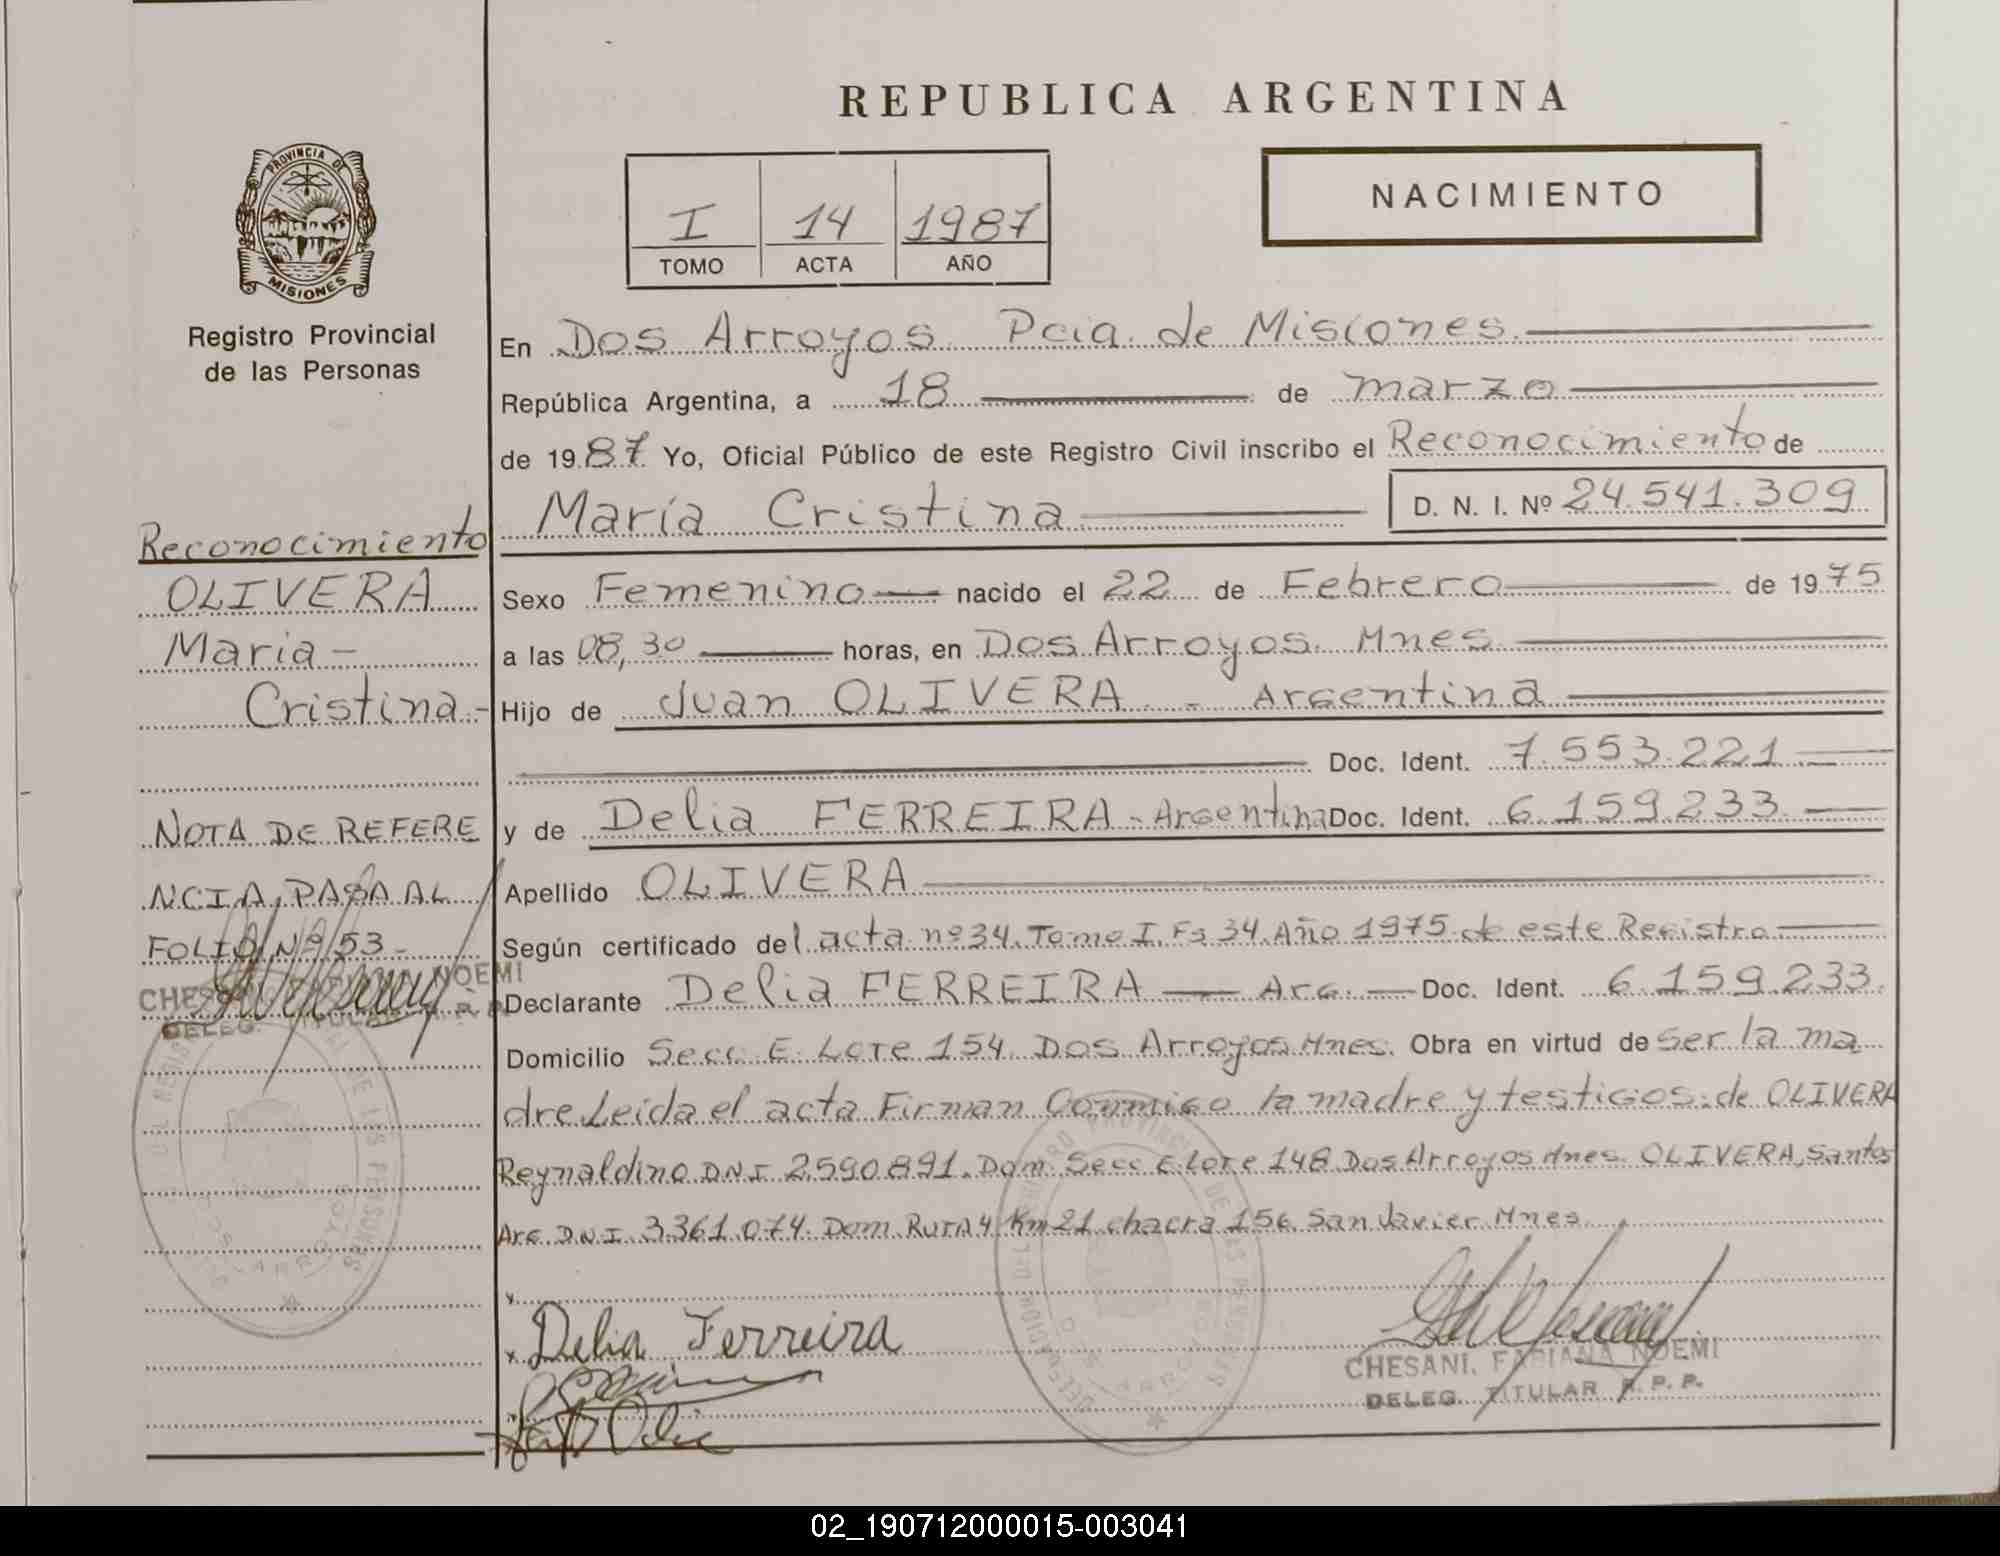 REPUBLICA ARGENTINA
PROVINCIA DE
MISIONES
Registro Provincial
de las Personas
I 14 1987
TOMO ACTA AÑO
NACIMIENTO
En Dos Arroyos Pcia. de Misiones.
República Argentina, a 18 de marzo
de 1987 Yo, Oficial Público de este Registro Civil inscribo el Reconocimiento de
María Cristina D. N. I. Nº 24.541.309
Sexo Femenino nacido el 22 de Febrero de 1975
a las 08,30 horas, en Dos Arroyos. Mnes
Hijo de Juan OLIVERA - Argentina
Doc. Ident. 7.553.221
y de Delia FERREIRA - Argentina Doc. Ident. 6.159.233
Apellido OLIVERA
Según certificado del acta nº 34. Tomo I. Fs 34. Año 1975 de este Registro
Declarante Delia FERREIRA — Arg. — Doc. Ident. 6.159.233.
Domicilio Secc. E. Lote 154. Dos Arroyos Mnes. Obra en virtud de ser la ma
dre. Leida el acta Firman Conmigo la madre y testigos: de OLIVERA
Reynaldino D.N.I 2.590.891. Dom. Secc E Lote 148 Dos Arroyos Mnes. OLIVERA, Santos
Arg. D.N.I 3.361.074. Dom. Ruta 4 Km 21 chacra 156. San Javier Mnes.
Delia Ferreira
CHESANI, FABIANA NOEMI
DELEG. TITULAR R. P. P.
Reconocimiento
OLIVERA
Maria -
Cristina -
NOTA DE REFERE
NCIA, PASA AL
FOLIO Nº 53 -
NOEMI
DELEG. TITULAR R. P. P.
02_190712000015-003041